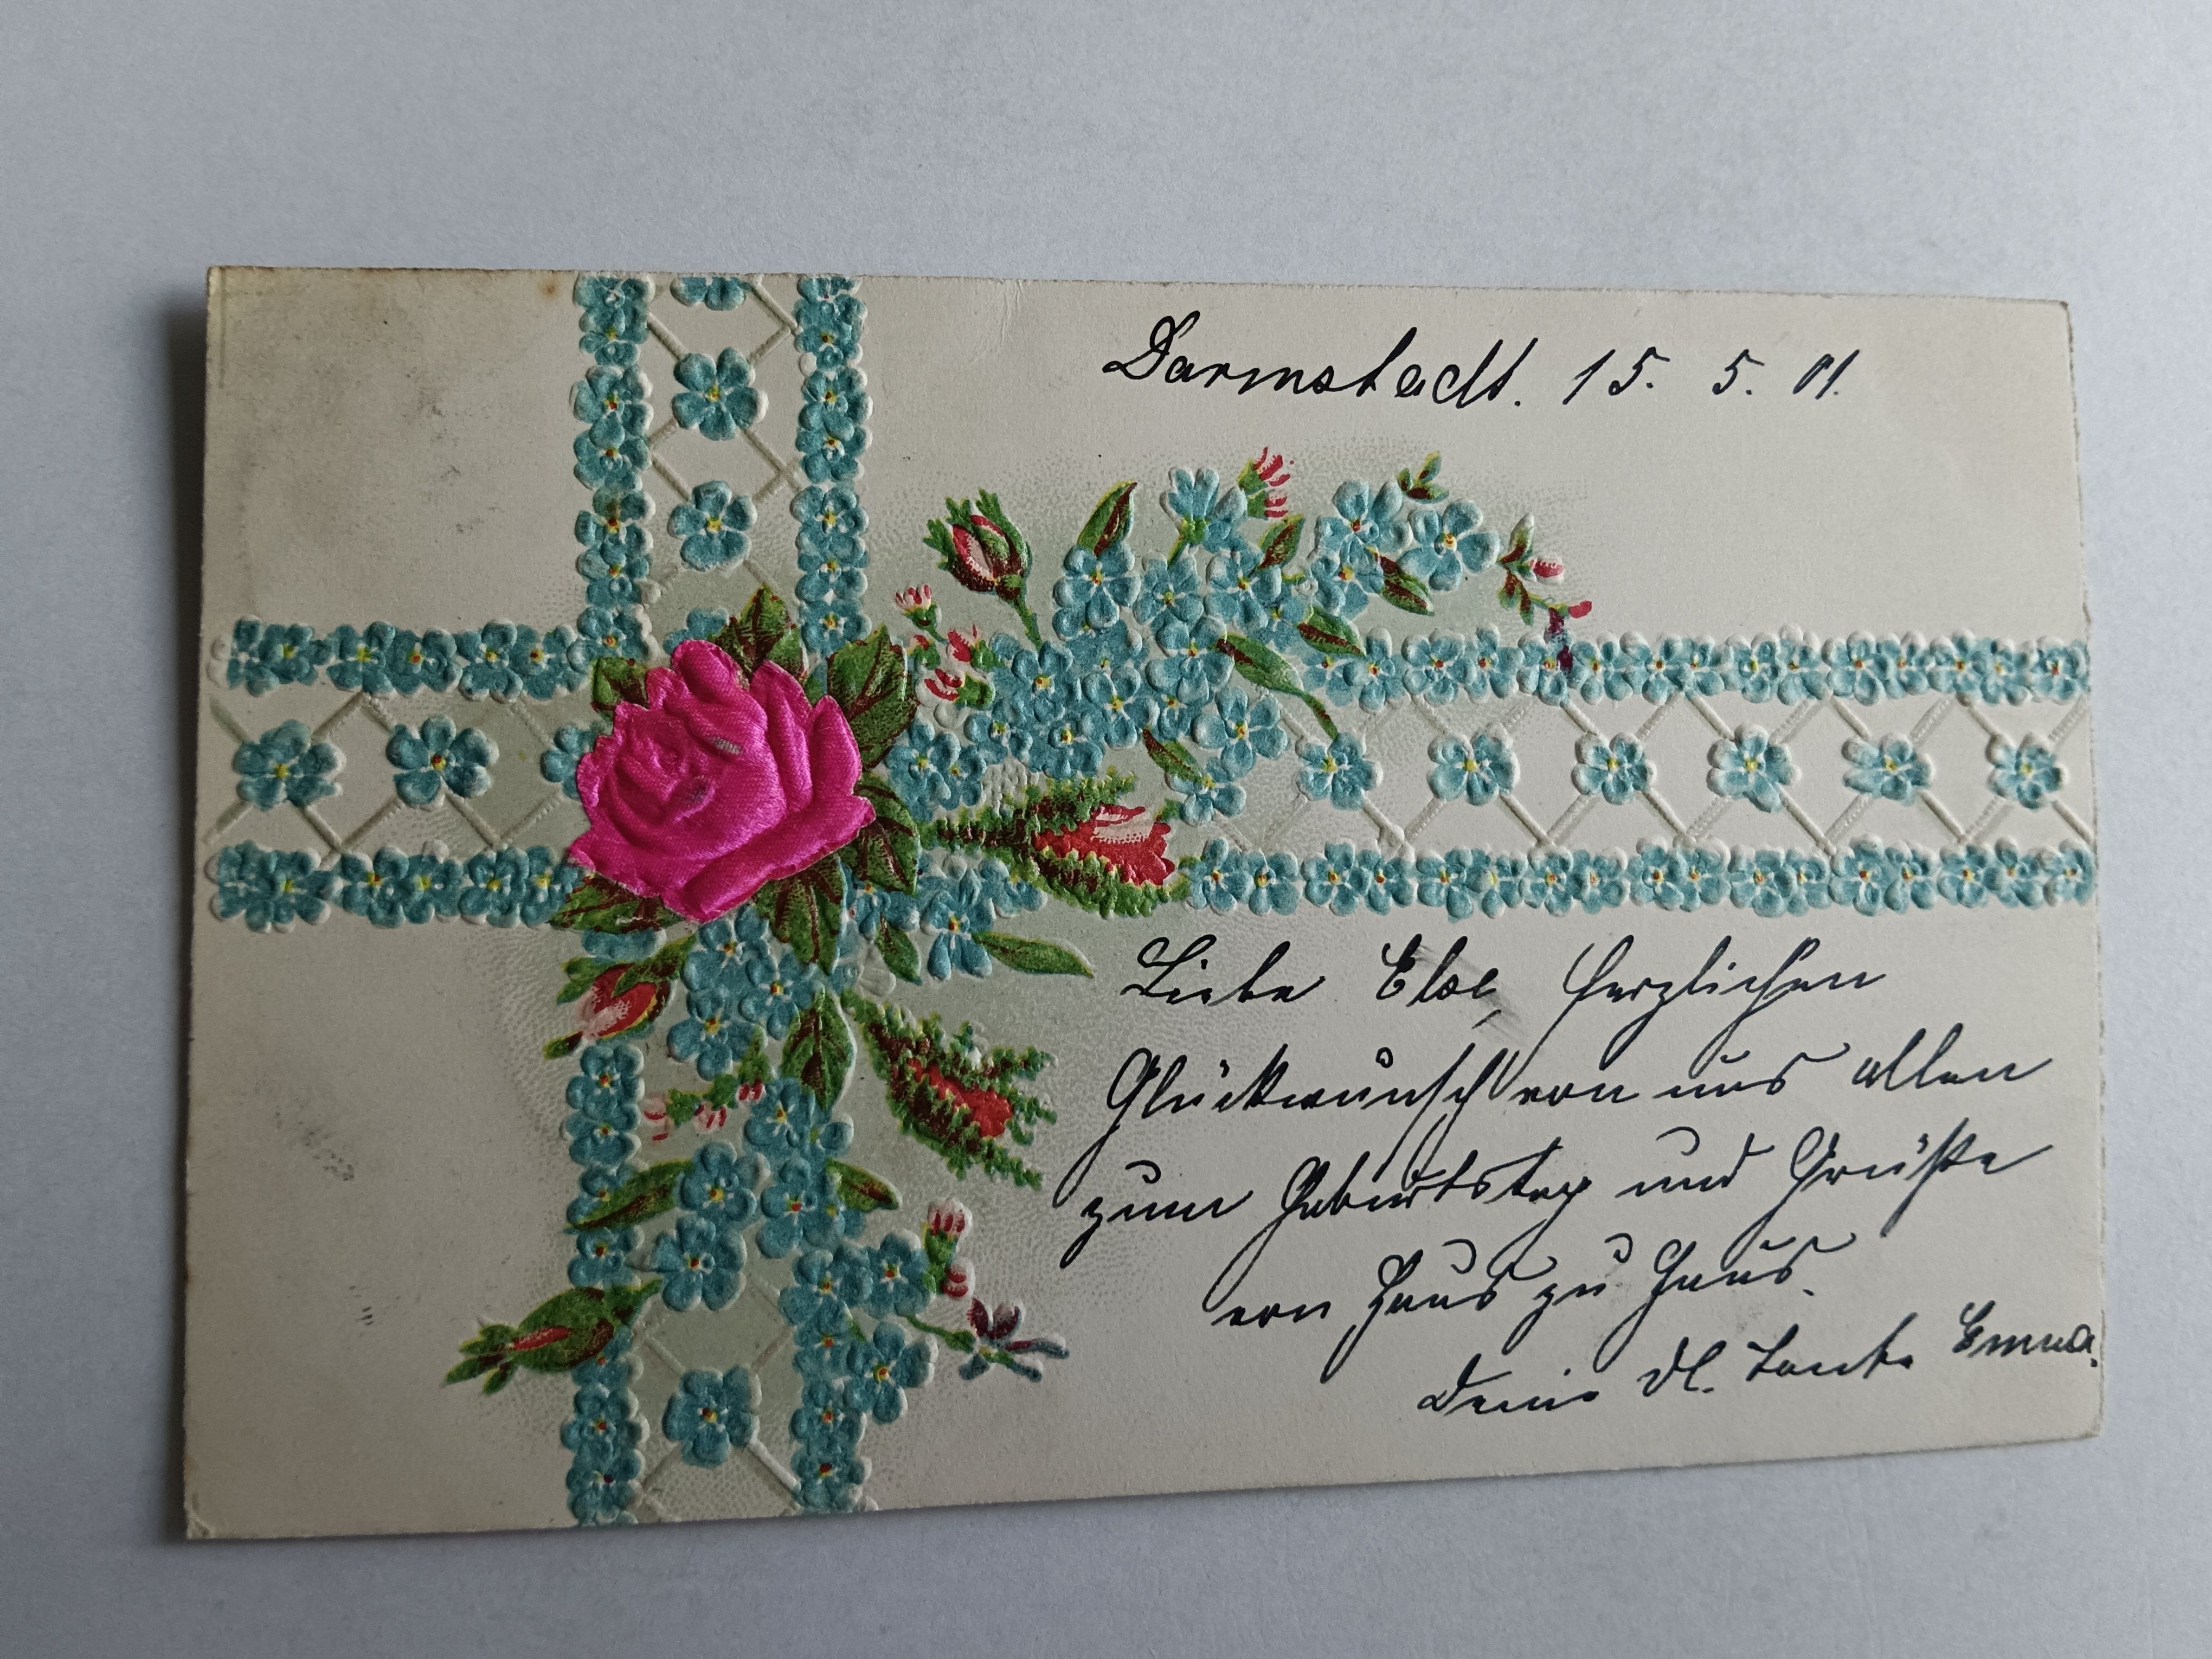 Darmstadt. 15. 5. 01.
Liebe Else, herzlichen
Glückwunsch von uns allen
zum Geburtstag und Grüße
von Haus zu Haus.
Deine dl. Tante Emma.